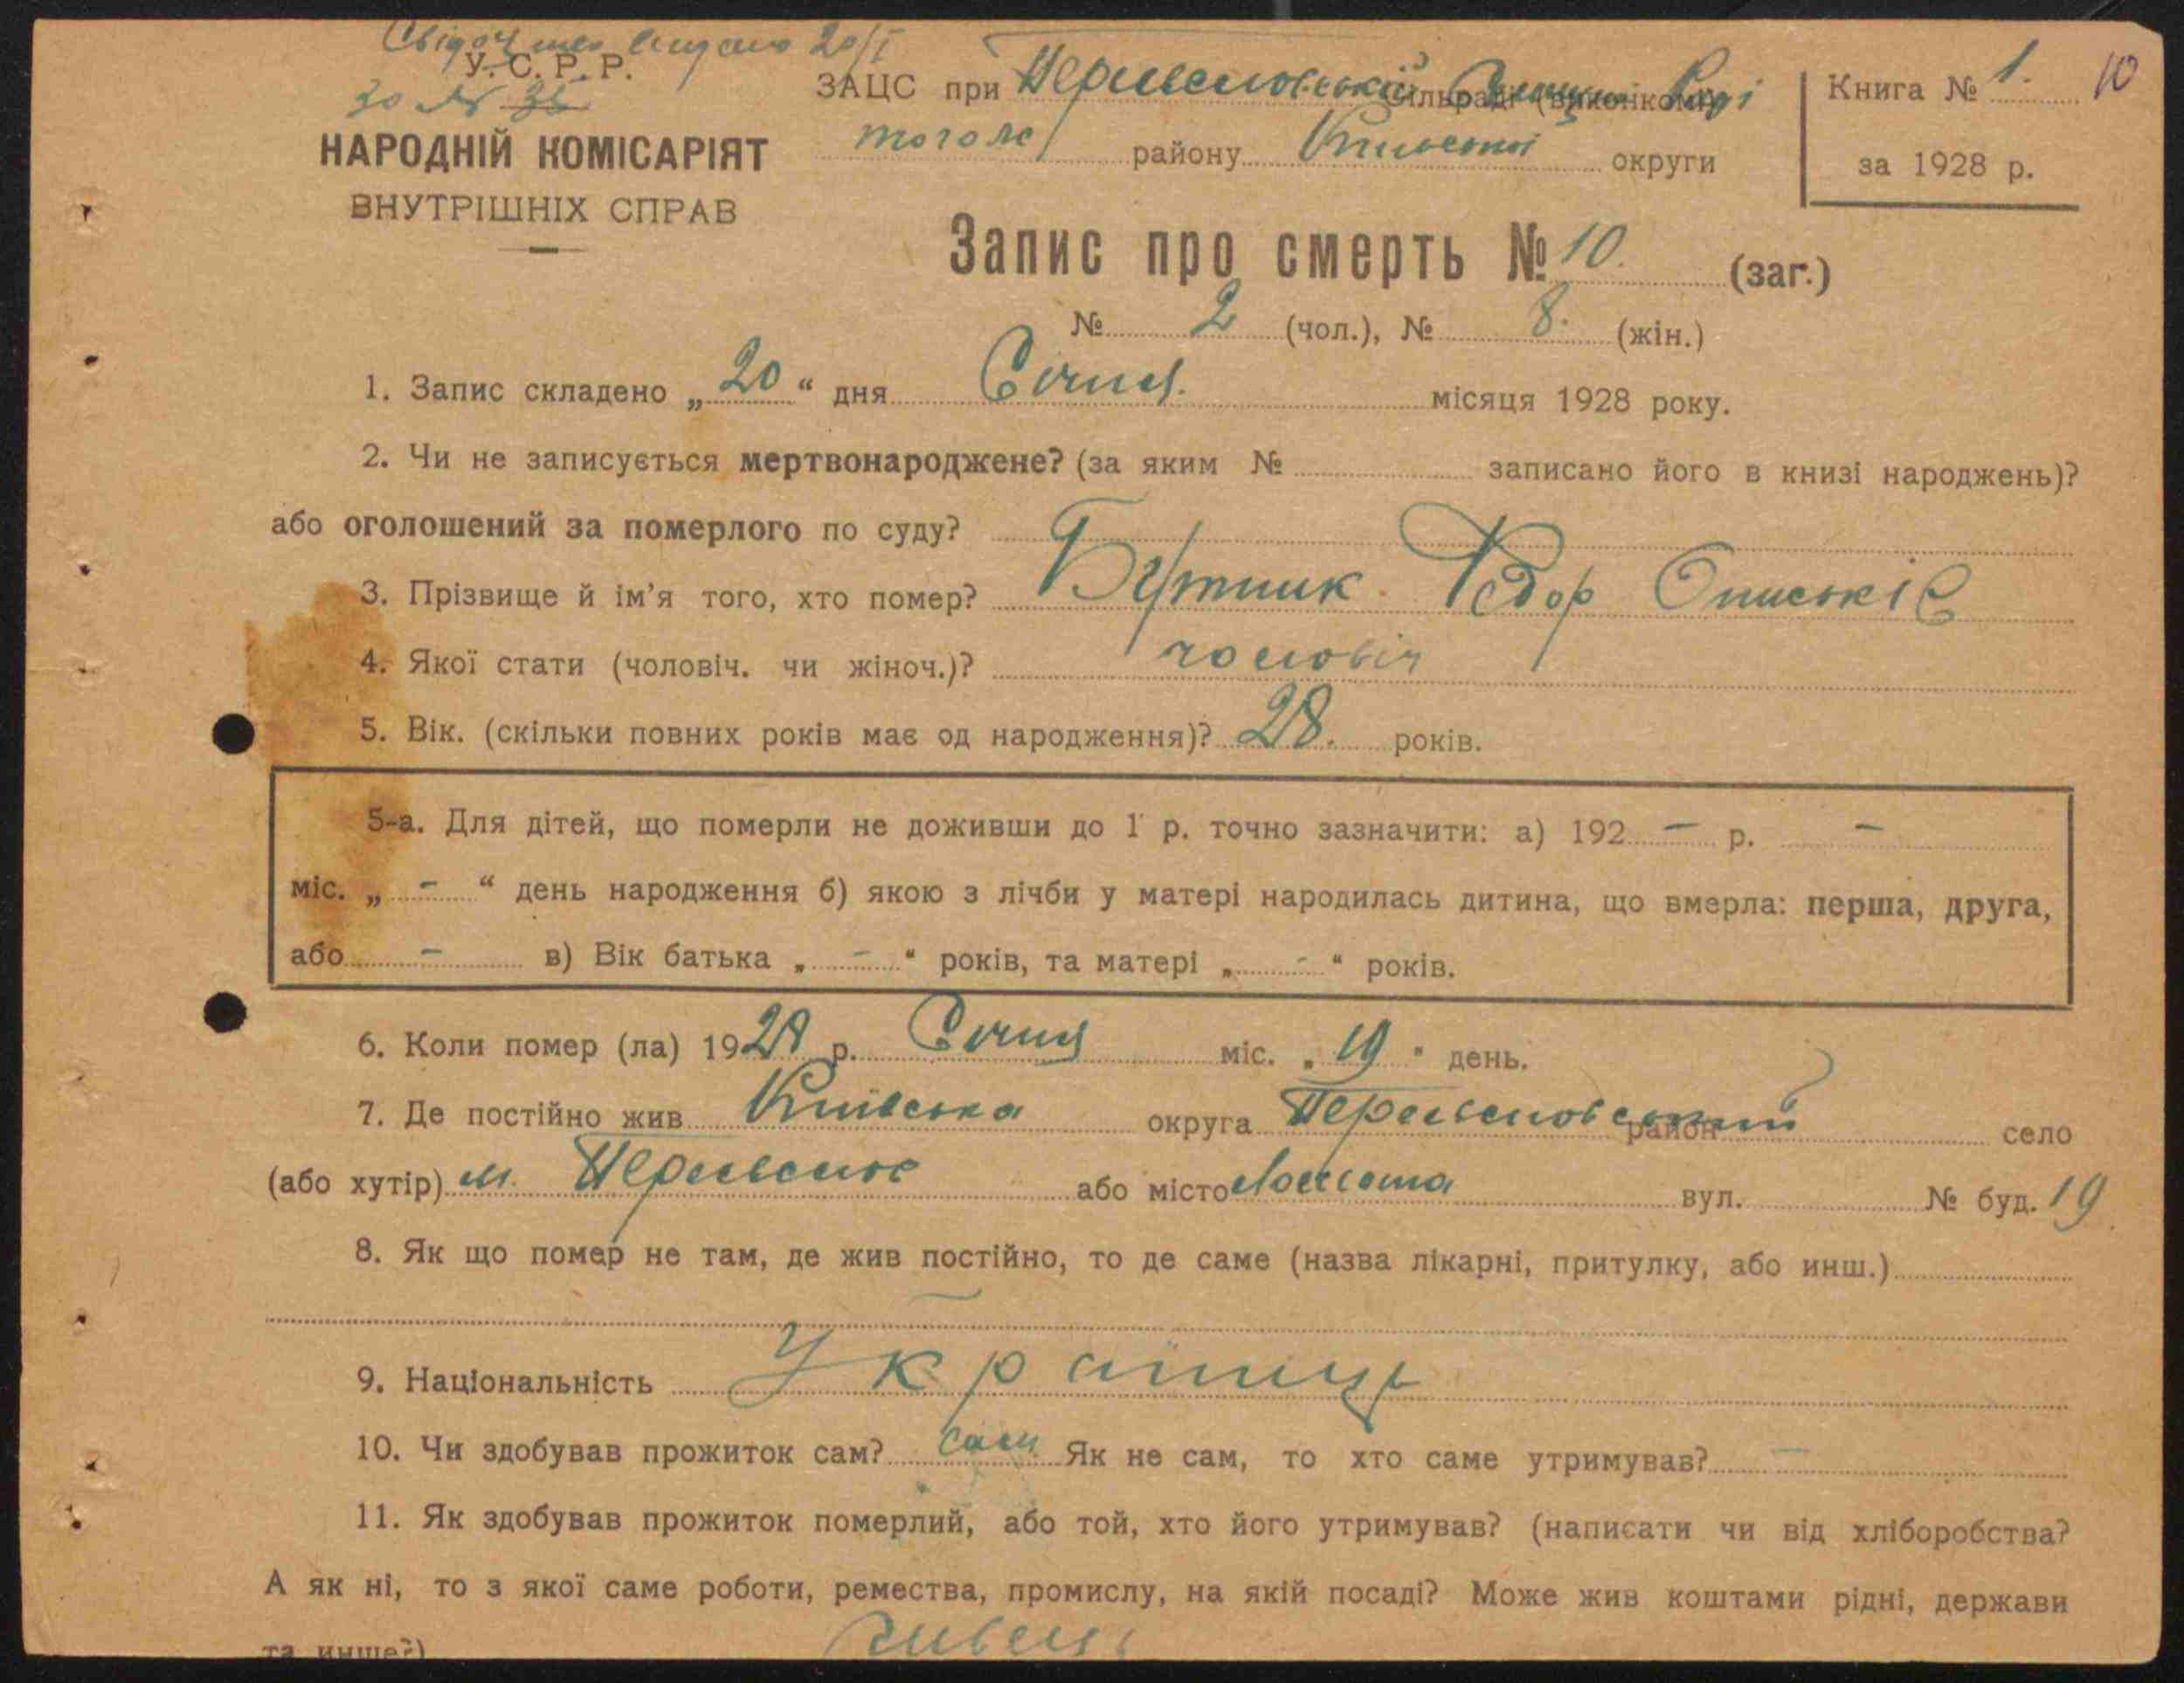 Свідоцтво видано 20/I
У. С. Р. Р.
за №
НАРОДНІЙ КОМІСАРІЯТ
ВНУТРІШНІХ СПРАВ
ЗАЦС при сільраді (виконкомі)
того ж району Київської округи
Книга № 1. 10
за 1928 р.
Запис про смерть № 10. (заг.)
№ 2 (чол.), № 8. (жін.)
1. Запис складено „ 20 “ дня Січня. місяця 1928 року.
2. Чи не записується мертвонароджене? (за яким № записано його в книзі народжень)?
або оголошений за померлого по суду?
3. Прізвище й ім'я того, хто помер? Бутник Федор
4. Якої стати (чоловіч. чи жіноч.)? чоловіч
5. Вік. (скільки повних років має од народження)? 28. років.
5-а. Для дітей, що померли не доживши до 1 р. точно зазначити: а) 192 – р. –
міс. „ – “ день народження б) якою з лічби у матері народилась дитина, що вмерла: перша, друга,
або – в) Вік батька „ – “ років, та матері „ – “ років.
6. Коли помер (ла) 1928 р. Січня міс. „ 19 “ день.
7. Де постійно жив Київська округа район село
(або хутір) м. або місто вул. № буд. 19
8. Як що помер не там, де жив постійно, то де саме (назва лікарні, притулку, або инш.)
9. Національність Українць
10. Чи здобував прожиток сам? сам Як не сам, то хто саме утримував? –
11. Як здобував прожиток померлий, або той, хто його утримував? (написати чи від хліборобства?
А як ні, то з якої саме роботи, ремества, промислу, на якій посаді? Може жив коштами рідні, держави
та инше?)